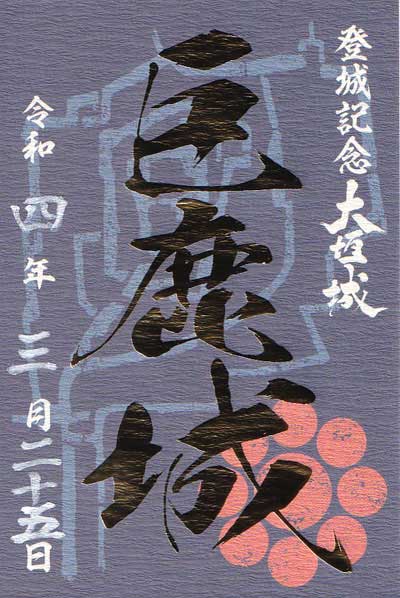 登城記念 大垣城
巨鹿城
令和四年三月二十五日